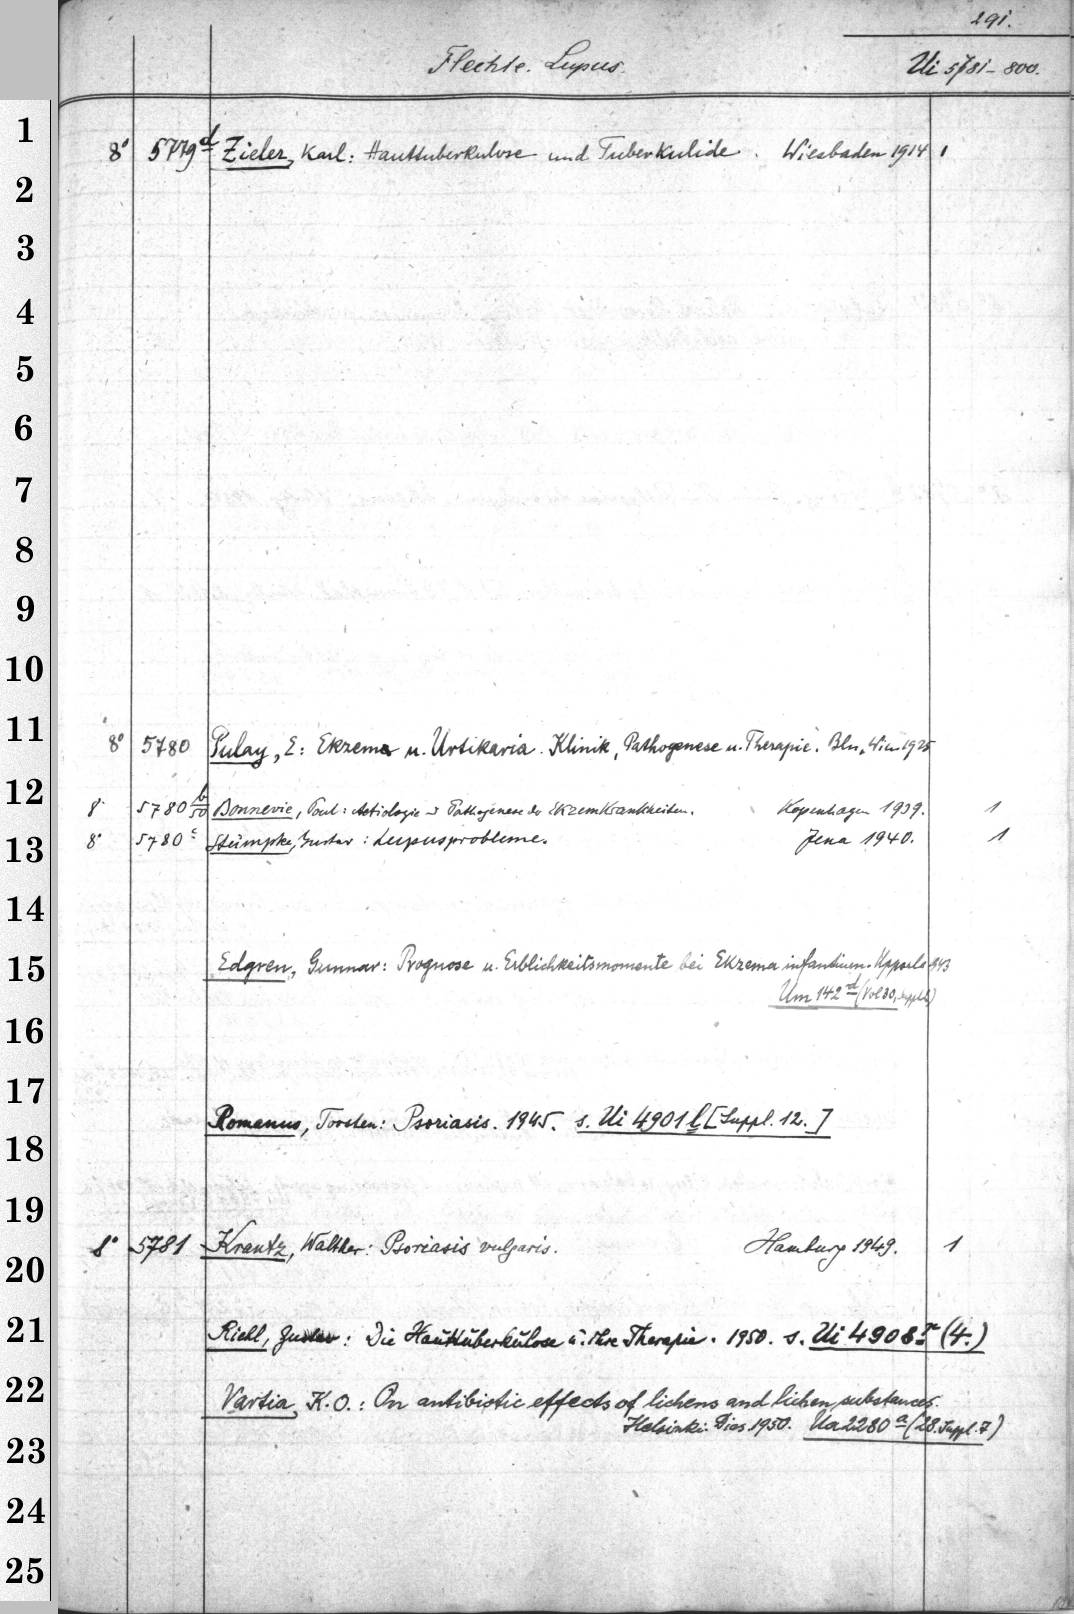 291.
Flechte. Lupus.
Ui 5781-800.
1
8° 5779d Zieler, Karl: Hauttuberkulose und Tuberkulide. Wiesbaden 1914 1
2
3
4
5
6
7
8
9
10
11
8° 5780 Pulay, E: Ekzema u. Urtikaria. Klinik, Pathogenese u. Therapie. Bln, Wien 1925
12
8° 5780 b/50 Bonnevie, Poul: Aetiologie u Pathogenese der Ekzemkrankheiten. Kopenhagen 1939. 1
13
8° 5780c Stümpke, Gustav: Lupusprobleme. Jena 1940. 1
14
15
Edgren, Gunnar: Prognose u. Erblichkeitsmomente bei Ekzema infantium. Uppsala 1943
Um 142d (Vol 30, Suppl.)
16
17
Romanus, Torsten: Psoriasis. 1945. s. Ui 4901 l [Suppl. 12.]
18
19
8° 5781 Krantz, Walther: Psoriasis vulgaris. Hamburg 1949. 1
20
21
Riehl, Gustav: Die Hauttuberkulose u. ihre Therapie. 1950. s. Ui 4908 (4.)
22
Vartia, K.O.: On antibiotic effects of lichens and lichen substances.
Helsinki: Diss. 1950. Ua 2280a (28. Suppl. 7)
23
24
25